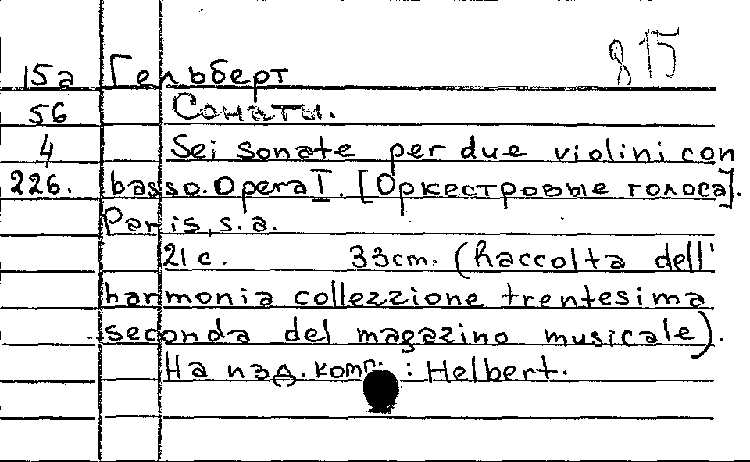 815
15а Гельберт
56 Сонаты.
4 Sei Sonate per due violini con
226. basso. Opera I. [Оркестровые голоса].
Paris, s.a.
21 с. 33cm. (Raccolta dell'
harmonia collezzione trentesima
seconda del magazino musicale).
На изд. комп. : Helbert.